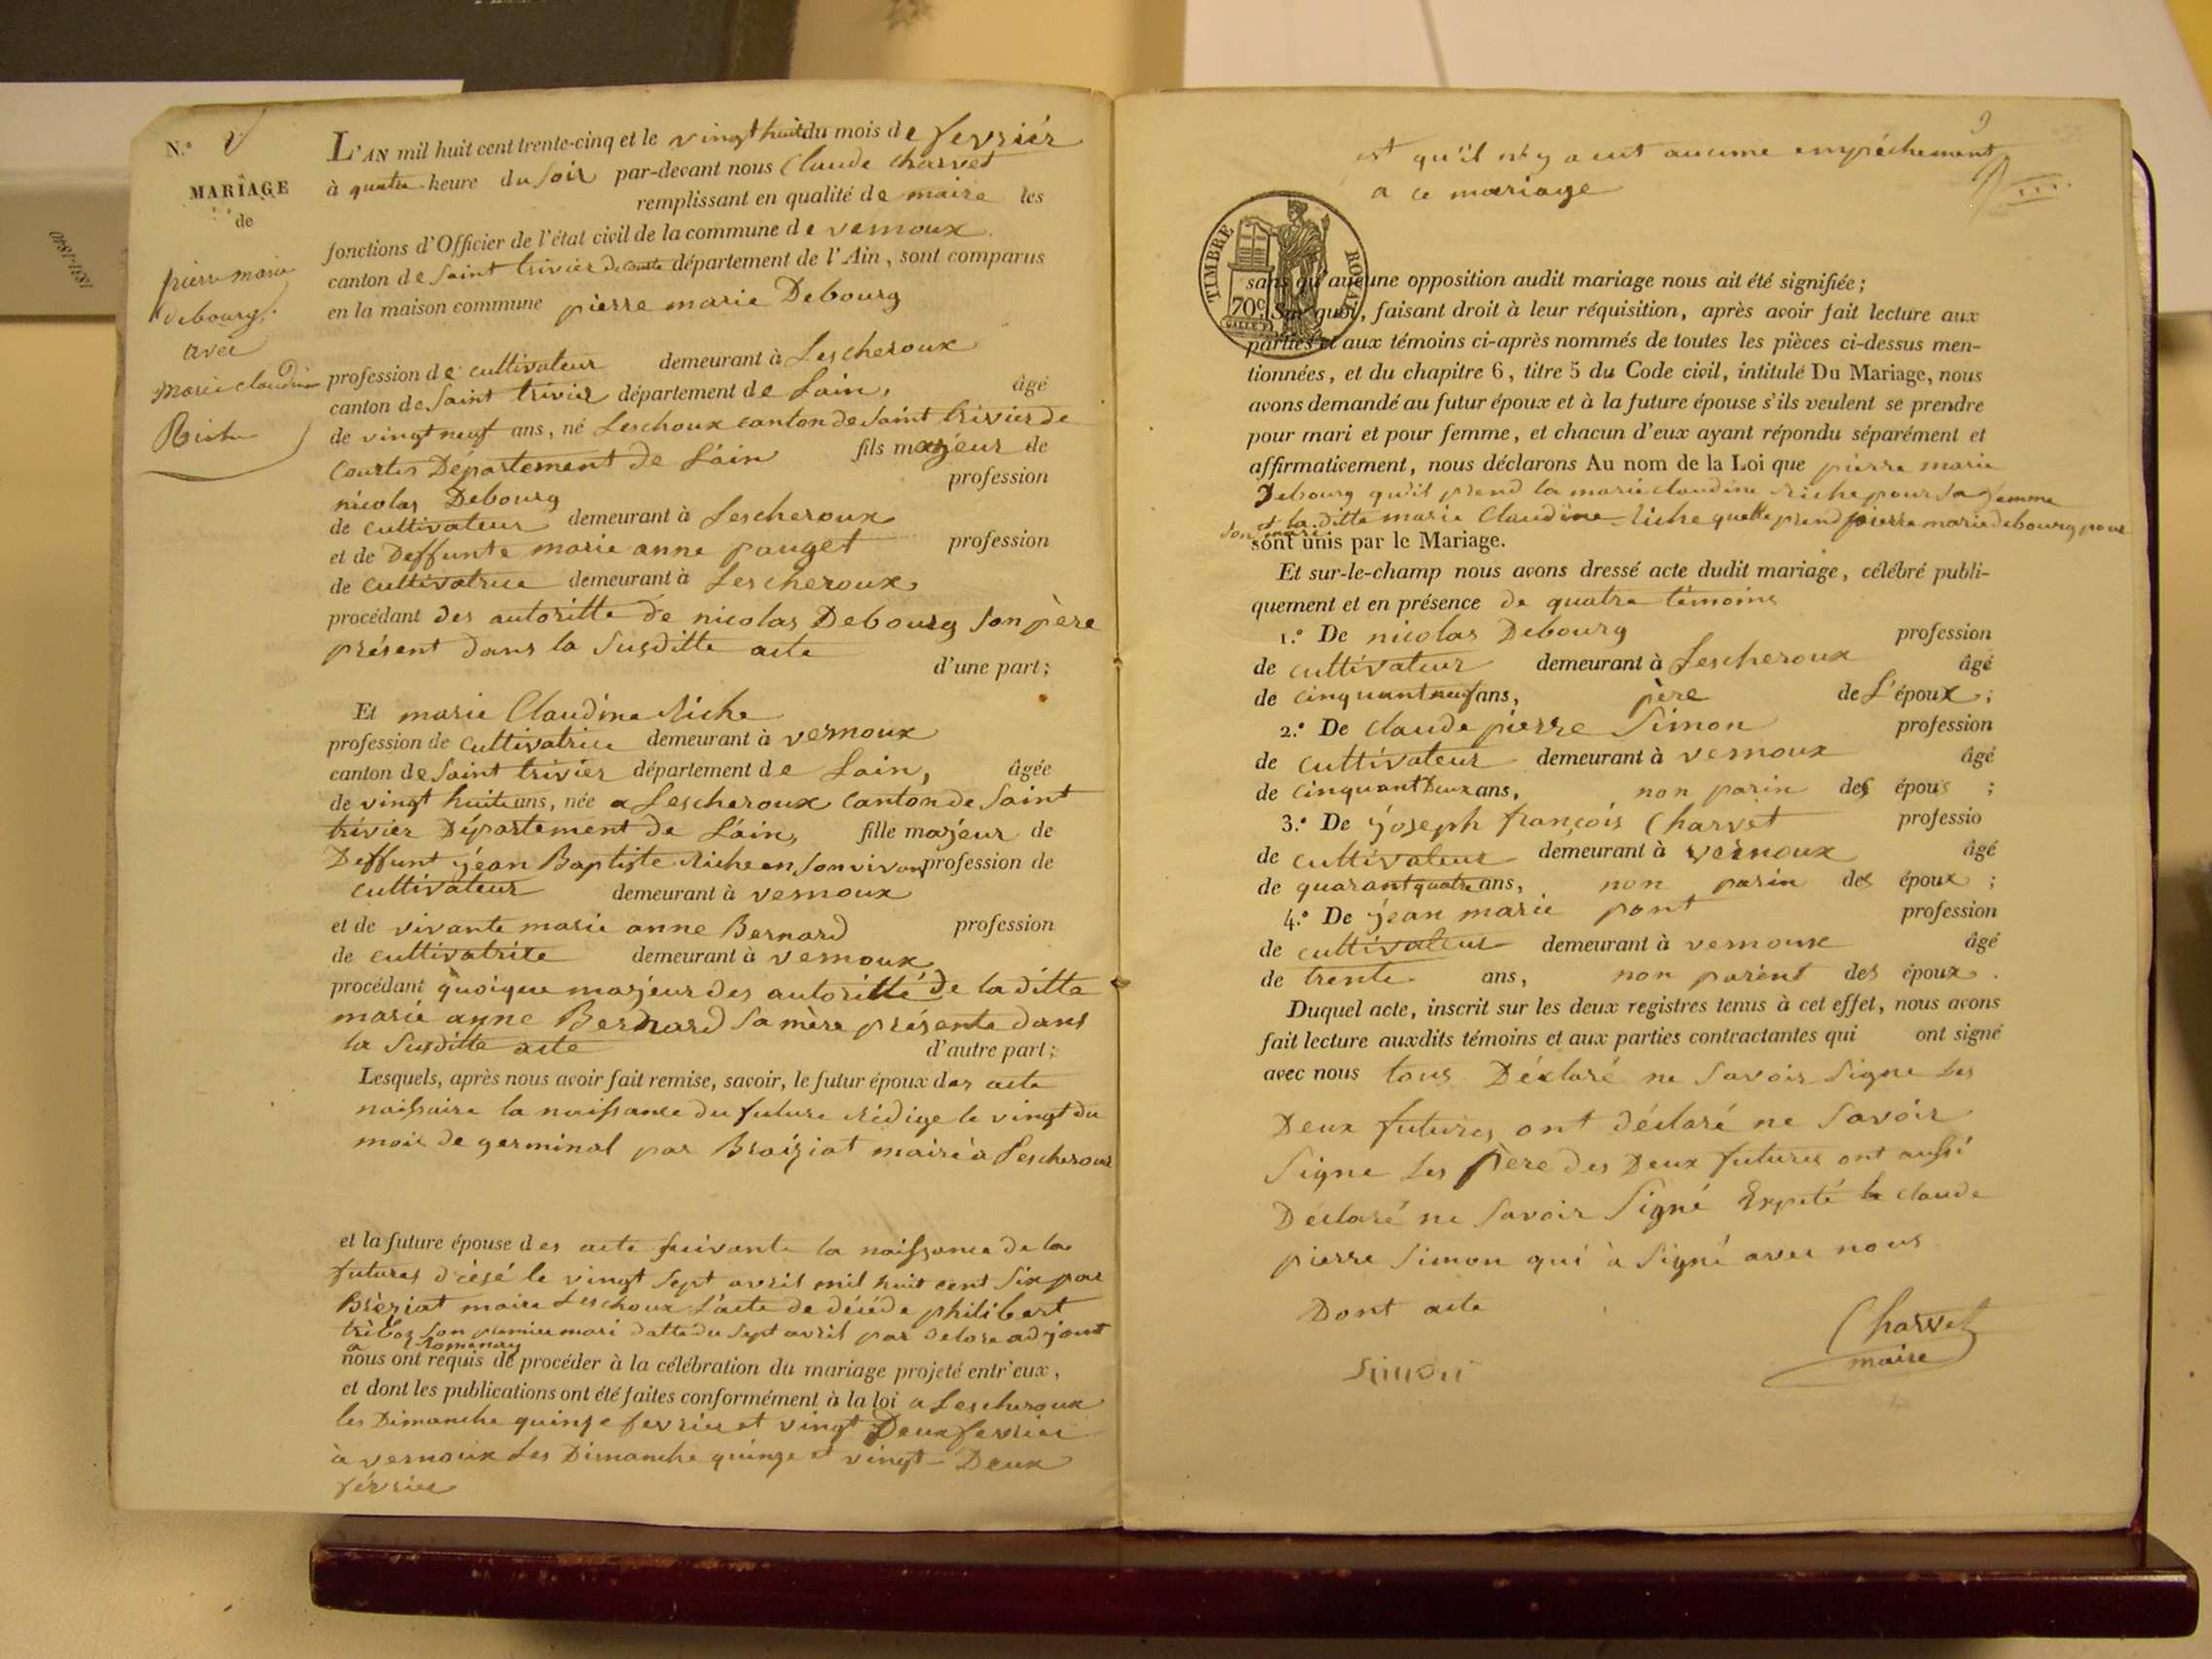 1831-1840
N.° V
MARIAGE
de
pierre marie
debourg
avec
marie claudine
Riche
L'AN mil huit cent trente-cinq et le vingt huit du mois de fevriér
à quatre heure du soir par-devant nous Claude Charvet
remplissant en qualité de maire les
fonctions d'Officier de l'état civil de la commune de vernoux
canton de saint trivier de courte département de l'Ain, sont comparus
en la maison commune pierre marie Debourg
profession de cultivateur demeurant à Lescheroux
canton de saint trivier département de Lain, âgé
de vingt neuf ans, né Leschoux canton de saint trivier de
Courtes Département de Láin fils majeur de
nicolas Debourg profession
de cultivateur demeurant à Lescheroux
et de Deffunte marie anne pauget profession
de cultivatrice demeurant à Lescheroux
procédant des autoritte de nicolas Debourg son père
présent dans la susditte acte
d'une part;
Et marie Claudine Riche
profession de cultivatrice demeurant à vernoux
canton de saint trivier département de Lain, âgée
de vingt huit ans, née a Lescheroux canton de saint
trivier Département de Láin, fille majeur de
Deffunt jéan Baptiste Riche en son vivant profession de
cultivateur demeurant à vernoux
et de vivante marie anne Bernard profession
de cultivatrice demeurant à vernoux
procédant quoique majeur des autorité de la ditte
marie anne Bernard sa mère présente dans
la susditte acte d'autre part;
Lesquels, après nous avoir fait remise, savoir, le futur époux des acte
la naissance du future rédige le vingt du
mois de germinal par maire à Lescheroux
et la future épouse des acte suivante la naissance de la
futures le vingt sept avril mil huit cent six par
maire Leschoux l'acte de décéde philibert
son premier mari datte du sept avril par adjoint
a Romenay
nous ont requis de procéder à la célébration du mariage projeté entr'eux,
et dont les publications ont été faites conformément à la loi a Lescheroux
les Dimanche quinze fevrier et vingt Deux fevrier
à vernoux Les Dimanche quinze et vingt-Deux
février
9
est qu'il n'y a eut aucume empéchement
a ce mariage
TIMBRE ROYAL
70c
sans qu'aucune opposition audit mariage nous ait été signifiée;
Sur quoi, faisant droit à leur réquisition, après avoir fait lecture aux
parties et aux témoins ci-après nommés de toutes les pièces ci-dessus men-
tionnées, et du chapitre 6, titre 5 du Code civil, intitulé Du Mariage, nous
avons demandé au futur époux et à la future épouse s'ils veulent se prendre
pour mari et pour femme, et chacun d'eux ayant répondu séparément et
affirmativement, nous déclarons Au nom de la Loi que pierre marie
Debourg qu'il prend la marie claudine riche pour sa femme
et la ditte marie Claudine riche quelle prend pierre marie debourg pour
son mari
sont unis par le Mariage.
Et sur-le-champ nous avons dressé acte dudit mariage, célébré publi-
quement et en présence de quatre témoins
1.° De nicolas Debourg profession
de cultivateur demeurant à Lescheroux âgé
de cinquant neuf ans, père de L'époux;
2.° De claude pierre Simon profession
de cultivateur demeurant à vernoux âgé
de cinquant Deux ans, non parin des épous ;
3.° De joseph françois Charvet professio
de cultivateur demeurant à vernoux âgé
de quarant quatre ans, non parin des époux ;
4.° De jean marie pont profession
de cultivateur demeurant à vernoux âgé
de trente ans, non parint des époux.
Duquel acte, inscrit sur les deux registres tenus à cet effet, nous avons
fait lecture auxdits témoins et aux parties contractantes qui ont signé
avec nous tous Déclaré ne savoir signe Les
Deux futures ont déclaré ne savoir
signe Les père des Deux futures ont aussi
Déclaré ne savoir signé Expeté le claude
pierre simon qui à signé avec nous
Dont acte
Charvet
maire
Simon